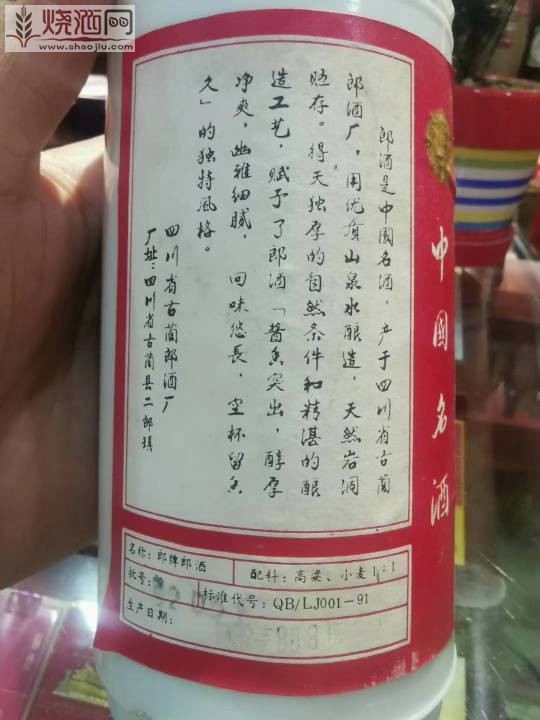 烧酒网
www.shaojiu.com
郎酒是中国名酒，产于四川省古蔺
郎酒厂，用优质山泉水酿造，天然岩洞
贮存。得天独厚的自然条件和精湛的酿
造工艺，赋予了郎酒「酱香突出，醇厚
净爽，幽雅细腻，回味悠長，空杯留香
久」的独特風格。
四川省古蔺郎酒厂
厂址：四川省古蔺县二郎镇
中國名酒
名称：郎牌郎酒
配料：高粱、小麦1：1
批号：
标准代号：QB/LJ001-91
生产日期：